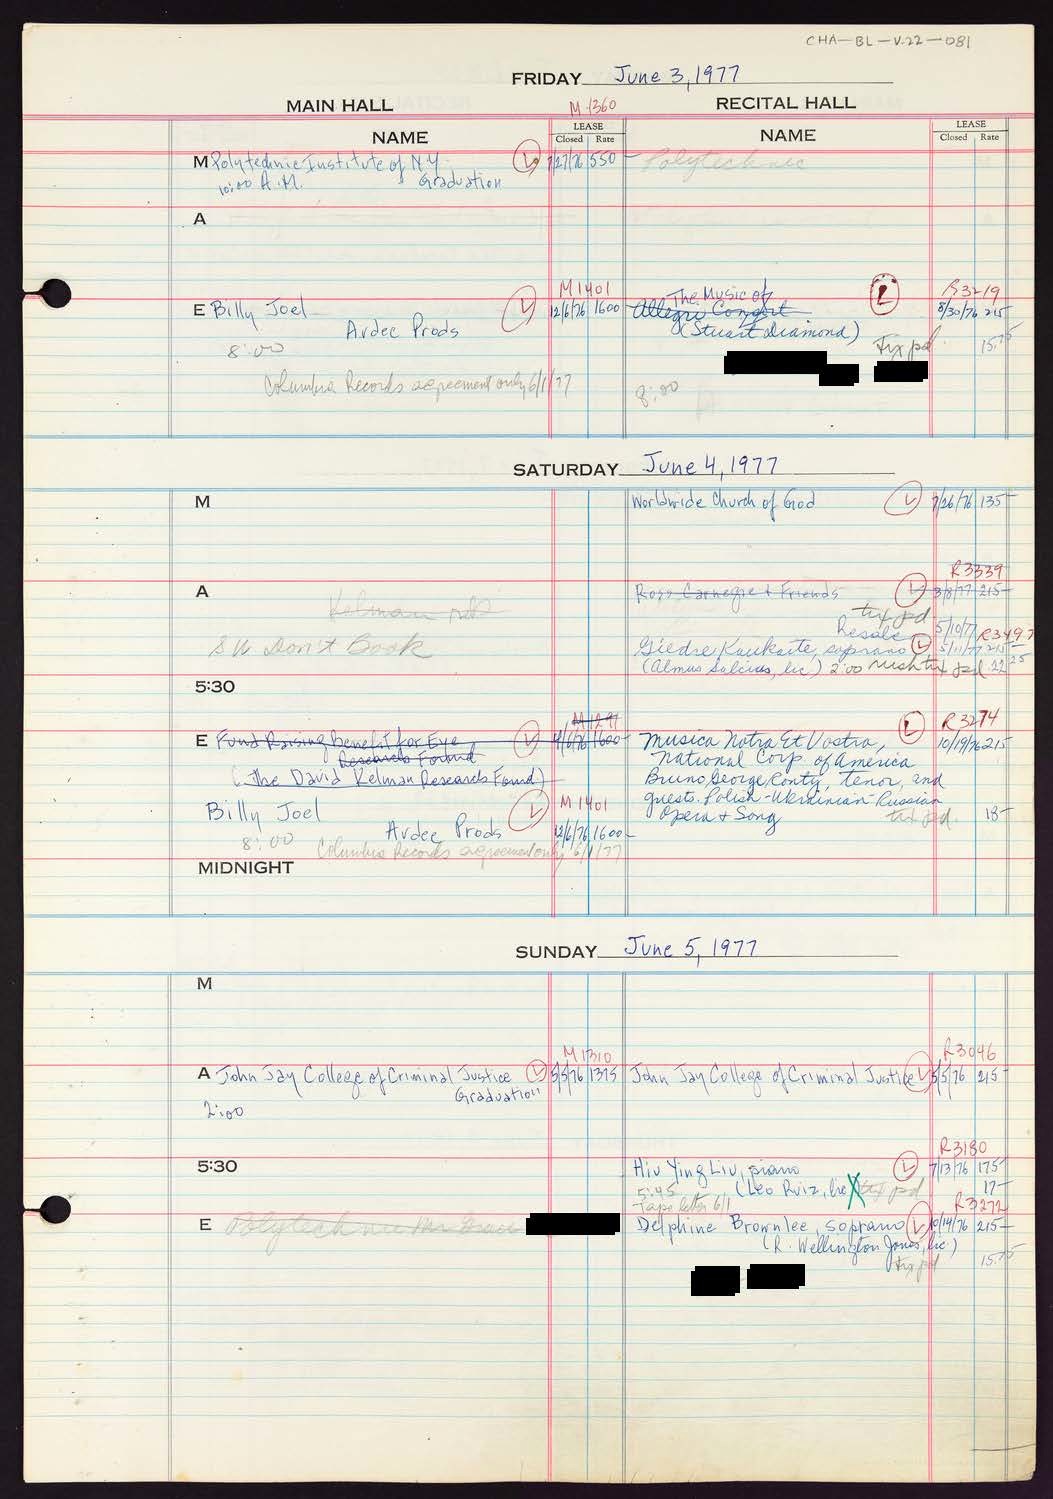 CHA-BL-V.22-081
FRIDAY June 3, 1977
MAIN HALL M 1360 RECITAL HALL
LEASE LEASE
NAME Closed Rate NAME Closed Rate
M Polytechnic Institute of N.Y. L 7/27/76 550- Polytechnic
10:00 A.M. Graduation
A
M1401 The Music of R3219
E Billy Joel L 12/6/76 1600- Allegri Consort L 8/30/76 215-
Ardee Prods (Stuart Diamond)
8:00 tix pd. 15.75
Columbia Records agreement only 6/1/77 8:00
SATURDAY June 4, 1977
M Worldwide Church of God L 7/26/76 135-
R3339
A Ross Carnegie & Friends L 3/8/77 215-
Kelman tix pd.
Resale 5/10/77 R3497
SU Don't Book Giedre Kaukaite, soprano L 5/11/77 215-
(Almus Salcius, lic) 2:00 rush tix pd 22.25
5:30
M1291 R3274
E Fund Raising Benefit for Eye L 4/6/76 1600- Musica Nostra Et Vostra, L 10/19/76 215-
Research Found National Corp. of America
(The David Kelman Research Found) Bruno George Ronty, tenor, and
guests. Polish-Ukrainian-Russian
Billy Joel L M1401 Opera & Song tix pd. 18-
Ardee Prods 12/6/76 1600-
8:00 Columbia Records agreement only 6/1/77
MIDNIGHT
SUNDAY June 5, 1977
M
M1310 R3046
A John Jay College of Criminal Justice L 5/5/76 1375 John Jay College of Criminal Justice L 5/5/76 215-
Graduation
2:00
R3180
5:30 Hiu Ying Liu, piano L 7/13/76 175-
5:45 (Leo Ruiz, lic) X tix pd 17-
Tape letter 6/1 R3272
E Polytechnic Delphine Brownlee, soprano L 10/14/76 215-
(R. Wellington Jones, lic.)
tix pd 15.75